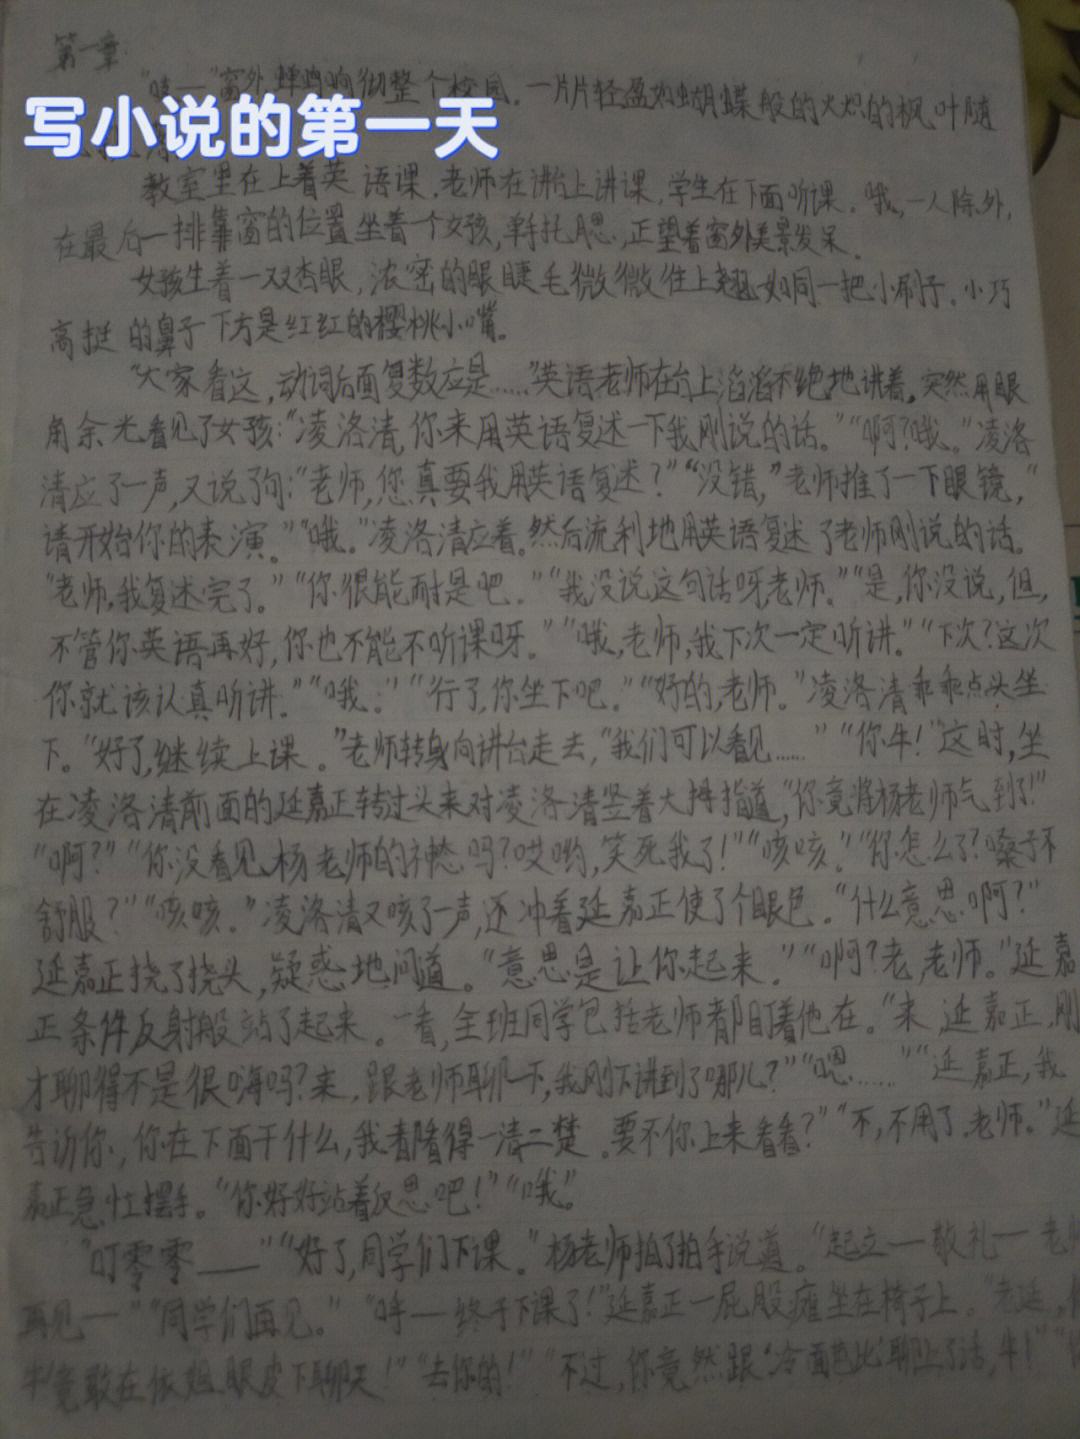 第一章
"嘻——"窗外,蝉鸣响彻整个校园。一片片轻盈如蝴蝶般的火炽的枫叶随
写小说的第一天
教室里在上着英语课。老师在讲台上讲课,学生在下面听课。哦,一人除外,
在最后一排靠窗的位置坐着一个女孩,单手托腮,正望着窗外美景发呆。
女孩生着一双杏眼,浓密的眼睫毛微微往上翘如同一把小刷子。小巧
高挺的鼻子下方是红红的樱桃小嘴。
"大家看这,动词后面复数应是……"英语老师在台上滔滔不绝地讲着,突然用眼
角余光看见了女孩:"凌洛清,你来用英语复述一下我刚说的话。""啊?哦。"凌洛
清应了一声,又说了句:"老师,您真要我用英语复述?""没错,"老师推了一下眼镜,"
请开始你的表演。""哦。"凌洛清应着。然后流利地用英语复述了老师刚说的话。
"老师,我复述完了。""你很能耐是吧。""我没说这句话呀老师。""是,你没说,但,
不管你英语再好,你也不能不听课呀。""哦,老师,我下次一定听讲。""下次?这次
你就该认真听讲。""哦。""行了,你坐下吧。""好的,老师。"凌洛清乖乖点头坐
下。"好了,继续上课。"老师转身向讲台走去,"我们可以看见……""你牛!"这时,坐
在凌洛清前面的延嘉正转过头来对凌洛清竖着大拇指道,"你竟将杨老师气到了!"
"啊?""你没看见杨老师的神态吗?哎哟,笑死我了!""咳咳。""你怎么了?嗓子不
舒服?""咳咳。"凌洛清又咳了一声,还冲着延嘉正使了个眼色。"什么意思啊?"
延嘉正挠了挠头,疑惑地问道。"意思是让你起来。""啊?老,老师。"延嘉
正条件反射般站了起来。一看,全班同学包括老师都盯着他在。"来,延嘉正,刚
才聊得不是很嗨吗?来,跟老师聊一下,我刚下讲到了哪儿?""嗯……""延嘉正,我
告诉你,你在下面干什么,我都看得一清二楚。要不你上来看看?""不,不用了,老师。"延
嘉正急忙摆手。"你好好站着反思吧!""哦。"
"叮零零——""好了,同学们下课。"杨老师拍了拍手说道。"起立——敬礼——老
再见——""同学们再见。""呼——终于下课了!"延嘉正一屁股瘫坐在椅子上。"老延,
牛!竟敢在依姐眼皮下聊天!""去你的!""不过,你竟然跟'冷面芭比'聊上了话,牛!"